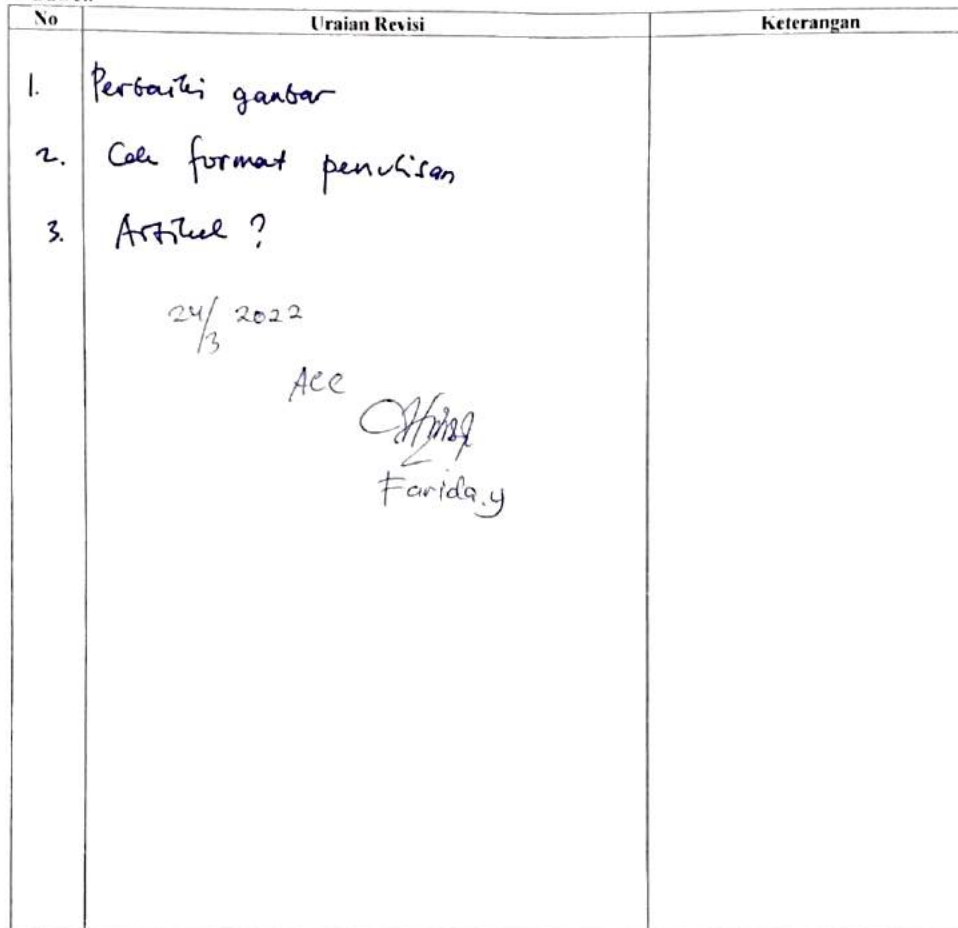 No Uraian Revisi Keterangan
1. Perbaiki gambar
2. Cek format penulisan
3. Artikel ?
24/3 2022
Acc
Farida.y